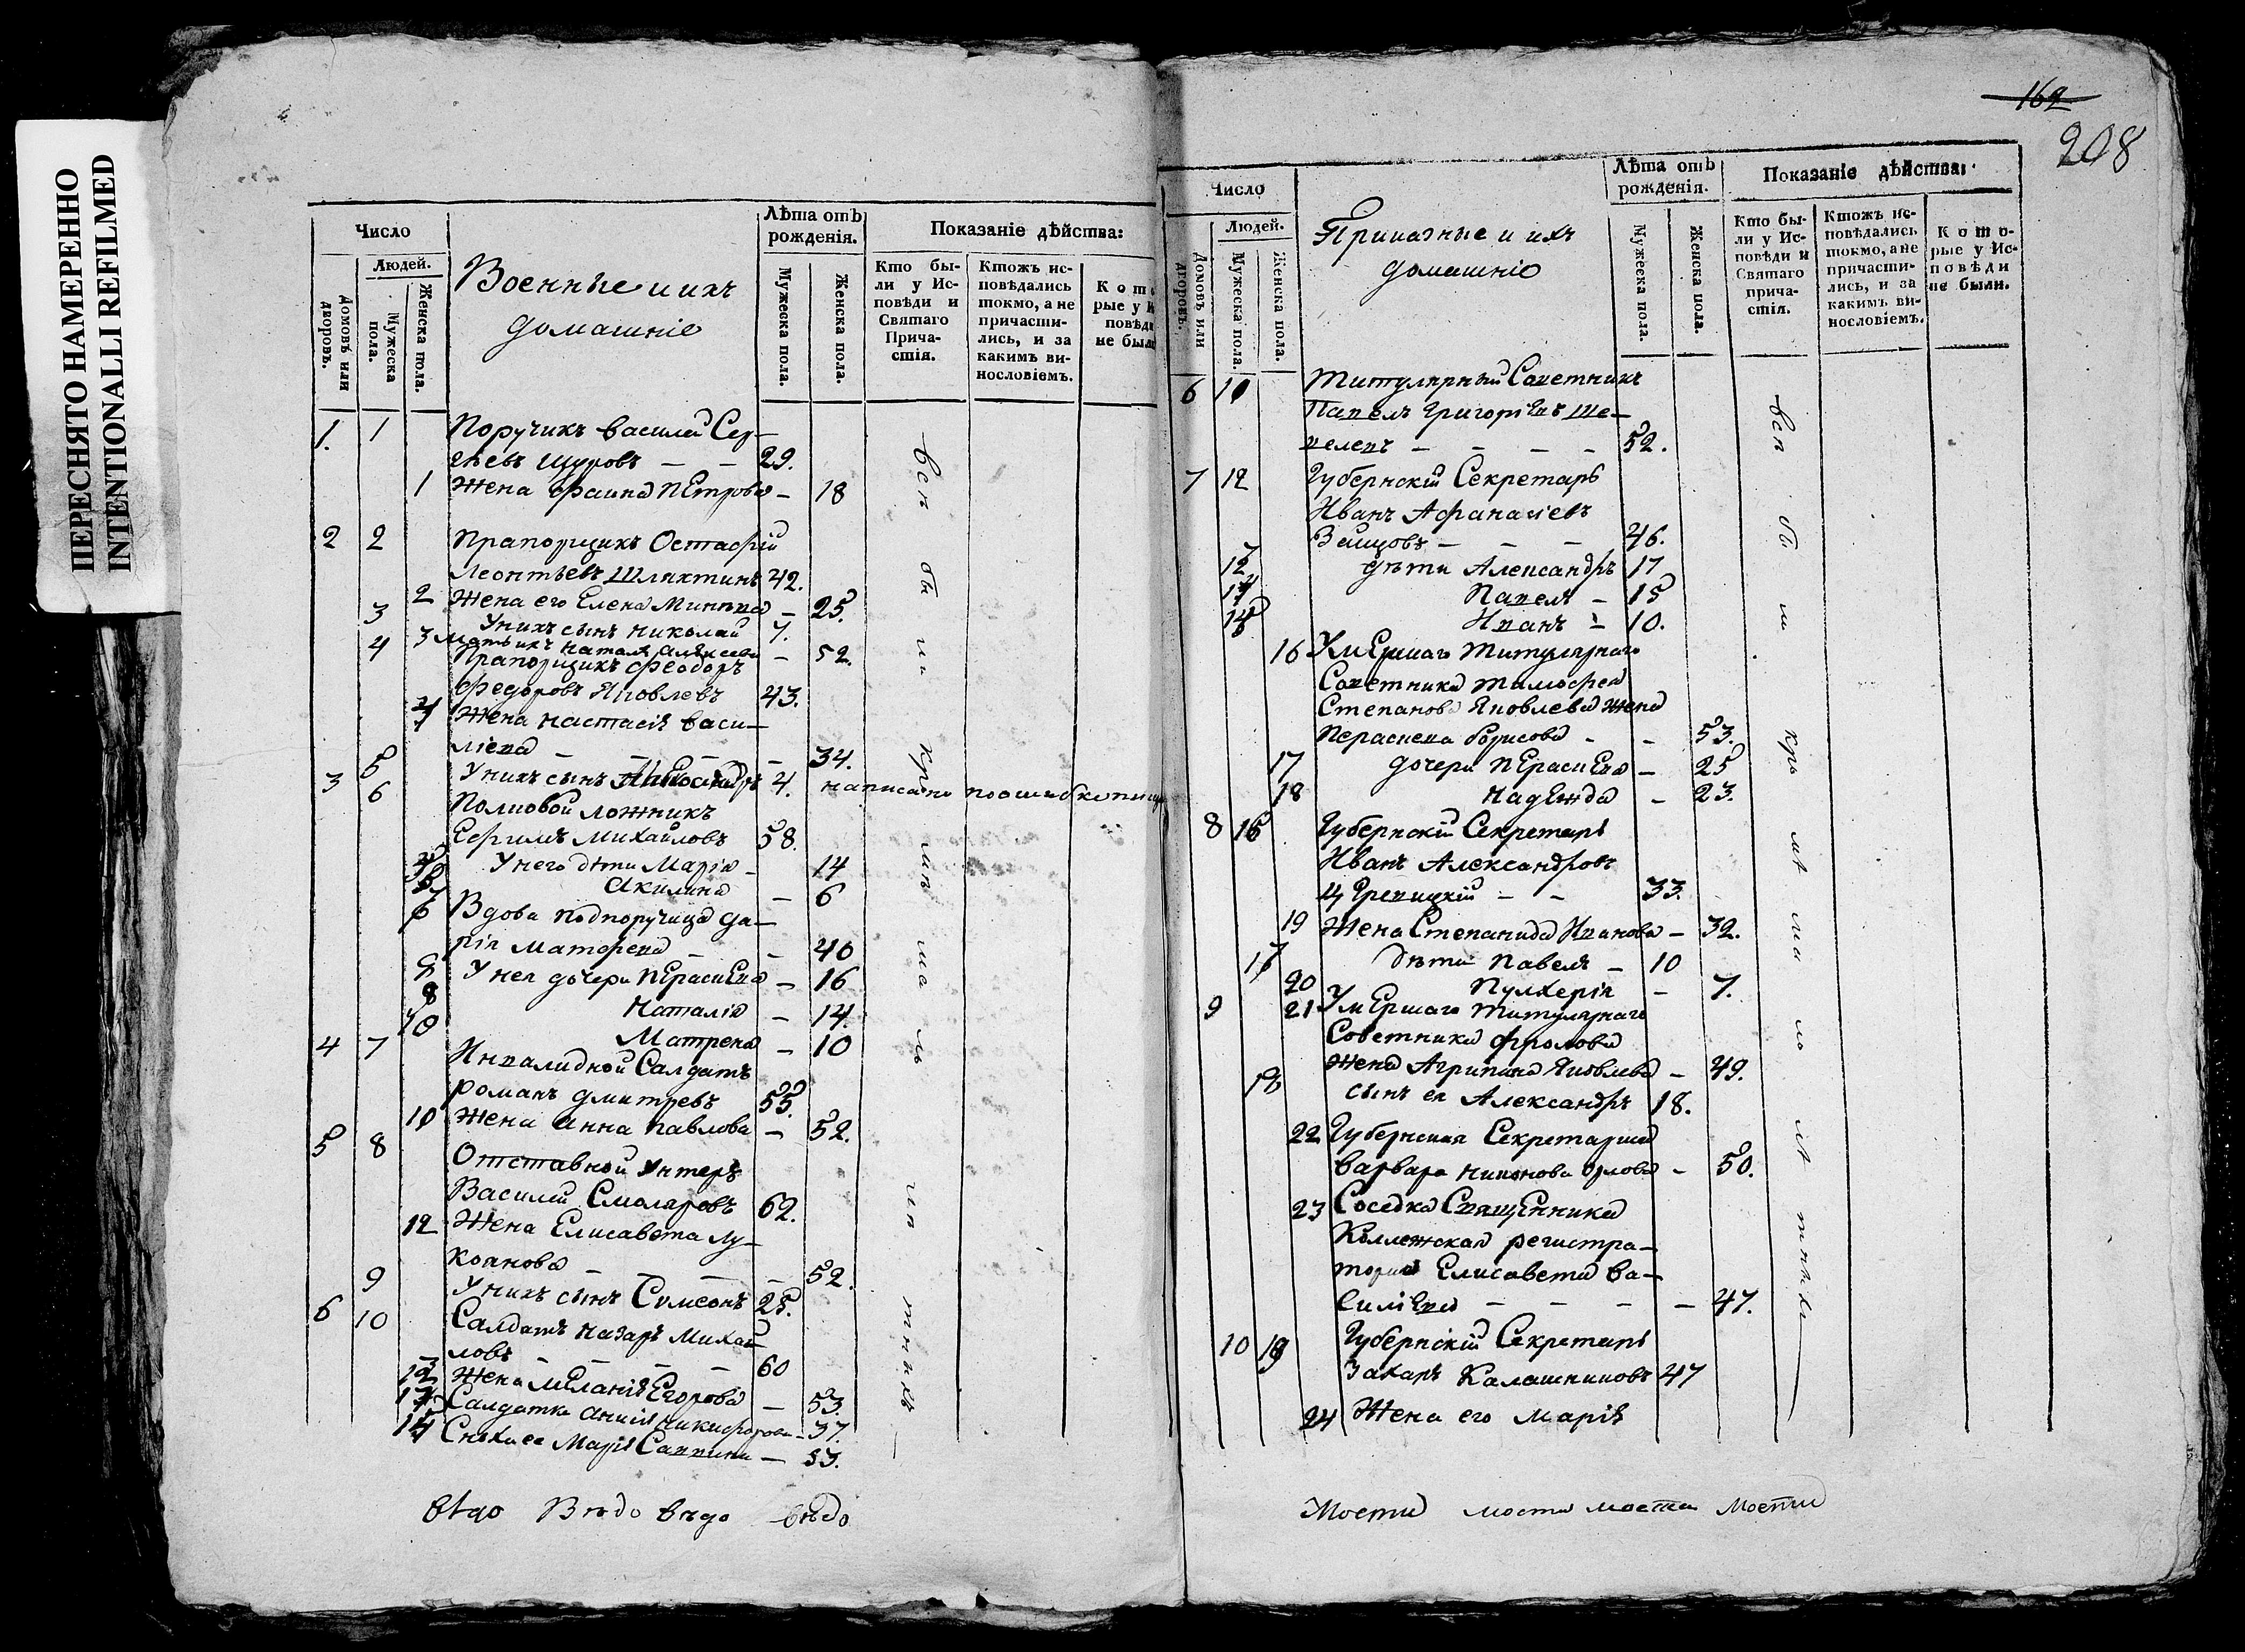 ПЕРЕСНЯТО НАМЕРЕННО
INTENTIONALLI REFILMED
Число
Людей.
Домовъ или дворовъ.
Мужеска пола.
Женска пола.
Военные и ихъ
домашніе
Лѣта отъ рожденія.
Мужеска пола.
Женска пола.
Показаніе дѣйства:
Кто были у Исповѣди и Святаго Причастія.
Ктожъ исповѣдались токмо, а не причастились, и за какимъ винословіемъ.
1. 1 Поручикъ Василей Сер-
гѣевъ Щуровъ — — 29.
1 Жена Фаина Петрова — 18
2 2 Прапорщикъ Остафій
Леонтьевъ Шлихтинъ 42.
2 Жена его Елена Минѣева — 25.
3 У нихъ сынъ Николай 7.
3 Мать ихъ Наталья Алексеева — 52.
4 Прапорщикъ Феодоръ
Федоровъ Яковлевъ 43.
4 Жена Настасія Васи-
ліева — — — — 34.
5 У нихъ сынъ 4. написано по ошибке
3 6 Полковой ложникъ
Ефимъ Михайловъ 58.
У него дѣти Марія — 14
Акилина — 6
Вдова подпоручица Да-
рія Матфеева — — 40
У нея дочери Параскева — 16
Наталія — 14.
Матрена — 10
4 7 Инвалидной Салдатъ
Романъ Дмитревъ 55.
Жена Анна Павлова — 52.
5 8 Отставной Унтеръ
Василей Смоляровъ 62.
12 Жена Елисавета Лу-
коянова — — — — 52.
9 У нихъ сынъ Симеонъ 25.
6 10 Салдатъ Назаръ Михай-
ловъ — — — — 60
13 Жена Меланія Егорова — 53
14 Салдатка Анисія Никифорова — 37.
15 Сноха ее Марія Саввина — 33.
вѣдо Вѣдо вѣдо вѣдо
всѣ бы ли
162
208
Число
Людей.
Домовъ или дворовъ.
Мужеска пола.
Женска пола.
Приказные и ихъ
домашніе
Лѣта отъ рожденія.
Мужеска пола.
Женска пола.
Показаніе дѣйства:
Кто были у Исповѣди и Святаго причастія.
Ктожъ исповѣдались токмо, а не причастились, и за какимъ винословіемъ.
Которые у Исповѣди не были.
6 Титулярный Советникъ
Павелъ Григоріевъ Ше-
велевъ — — — — 52.
7 12 Губернскій Секретарь
Иванъ Афанасіевъ
Зейцовъ — — — 46.
дѣти Александръ 17
Павелъ — 15
Иванъ — 10.
16 Умершаго Титулярнаго
Советника Тимофея
Степанова Яковлева жена
Параскева Борисова — — 53.
17 дочери Параскева — 25
18 Надежда — 23.
8 16 Губернскій Секретарь
Иванъ Александровъ
— — 33.
19 Жена Степанида Иванова — 32.
17 дѣти Павелъ — 10
20 Пулхерія — 7.
9 21 Умершаго Титулярнаго
Советника Фролова
жена Агрипина Яковлева — 49.
18 сынъ ея Александръ 18.
22 Губернская Секретарша
Варвара Никонова Орлова — 50.
23 Соседка Священника
Коллежская регистра-
торша Елисавета Ва-
силіева — — — — 47.
10 19 Губернскій Секретарь
Захаръ Калашниковъ 47
24 Жена его Марія
Мости мости мости Мости
всѣ бы ли